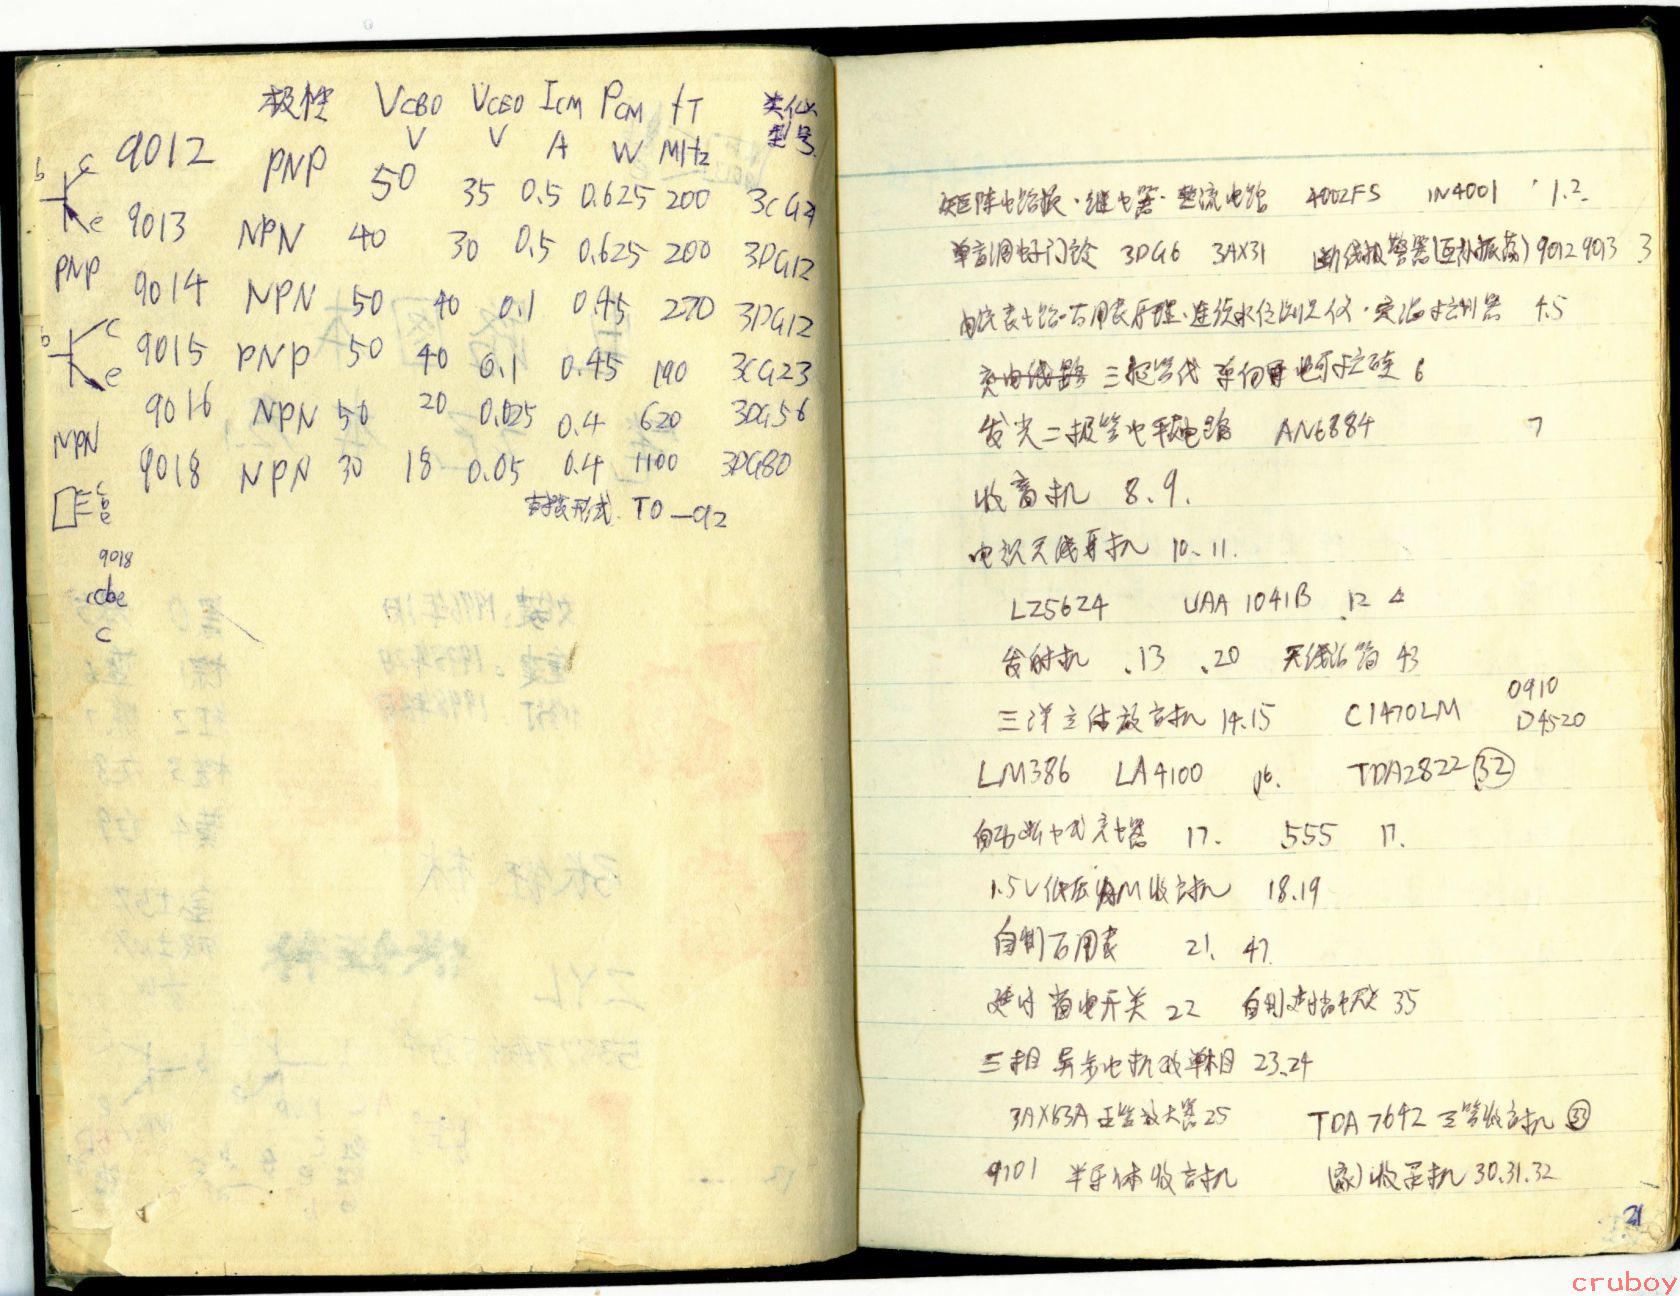 极性 VCBO VCEO ICM PCM fT 类似
V V A W MHz 型号.
9012 PNP 50 35 0.5 0.625 200 3CG2
b c e
9013 NPN 40 30 0.5 0.625 200 3DG12
PNP
9014 NPN 50 40 0.1 0.45 270 3DG12
9015 PNP 50 40 0.1 0.45 190 3CG23
b c e
9016 NPN 50 20 0.025 0.4 620 3DG56
NPN
9018 NPN 30 18 0.05 0.4 1100 3DG80
c b e
封装形式. TO—92
9018
cbe
c
矩阵电路板·继电器·整流电路 4002FS IN4001 1.2
单音调电子门铃 3DG6 3AX31 断线报警器(互补振荡) 9012 9013 3
万用表原理·连续水位测定仪· 4.5
三极管代单向可控硅 6
发光二极管电平电路 AN6884 7
收音机 8.9.
电视天线耳机 10.11.
LZ5624 UAA 1041B 12
发射机 .13 .20 天线 43
三洋立体放音机 14.15 C1470LM 0910
D4520
LM386 LA4100 16. TDA2822 32
自动断电式充电器 17. 555 17.
1.5V低压FM收音机 18.19
自制万用表 21. 47
延时节电开关 22 自制 35
三相异步电机改单相 23.24
3AX63A 五管放大器 25 TDA 7642 三管收音机 33
9701 半导体收音机 收录机 30.31.32
21
cruboy